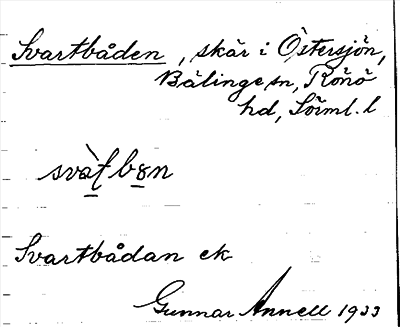 Svartbåden, skär i Östersjön,
Bälinge sn, Rönö
hd, Söml. l
svàʈbɷn
Svartbådan ek
Gunnar Annell 1933